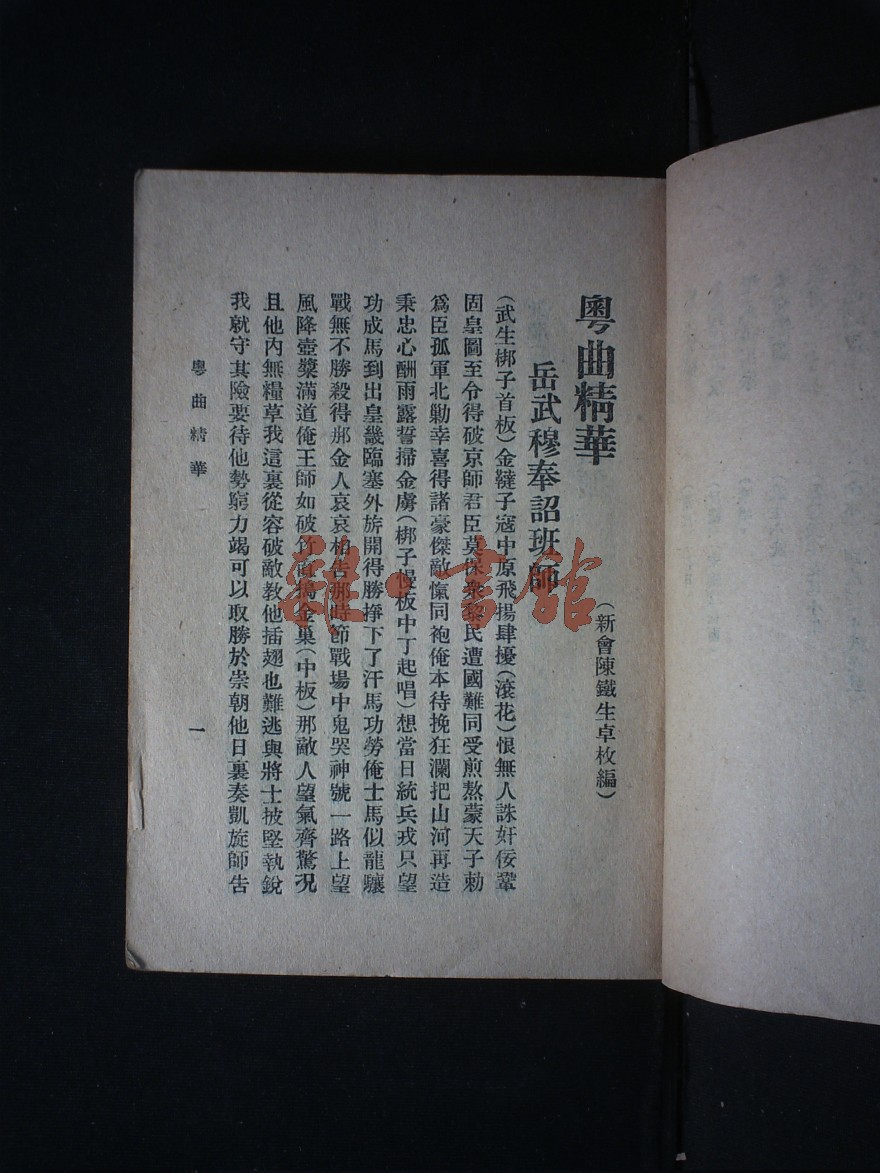 粵曲精華
(新會陳鐵生卓枚編)
岳武穆奉詔班師
(武生梆子首板)金韃子寇中原飛揚肆擾(滾花)恨無人誅奸佞鞏
固皇圖至令得破京師君臣莫保衆黎民遭國難同受煎熬蒙天子勅
爲臣孤軍北勦幸喜得諸豪傑敵愾同袍俺本待挽狂瀾把山河再造
秉忠心酬雨露誓掃金虜(梆子慢板中丁起唱)想當日統兵戎只望
功成馬到出皇畿臨塞外旂開得勝掙下了汗馬功勞俺士馬似龍驤
戰無不勝殺得那金人哀哀相告那時節戰場中鬼哭神號一路上望
風降壺漿滿道俺王師如破竹直搗金巢(中板)那敵人望氣齊驚況
且他內無糧草我這裏從容破敵教他插翅也難逃與將士披堅執銳
我就守其險要待他勢窮力竭可以取勝於崇朝他日裏奏凱旋師告
粵曲精華
一
雜·書館